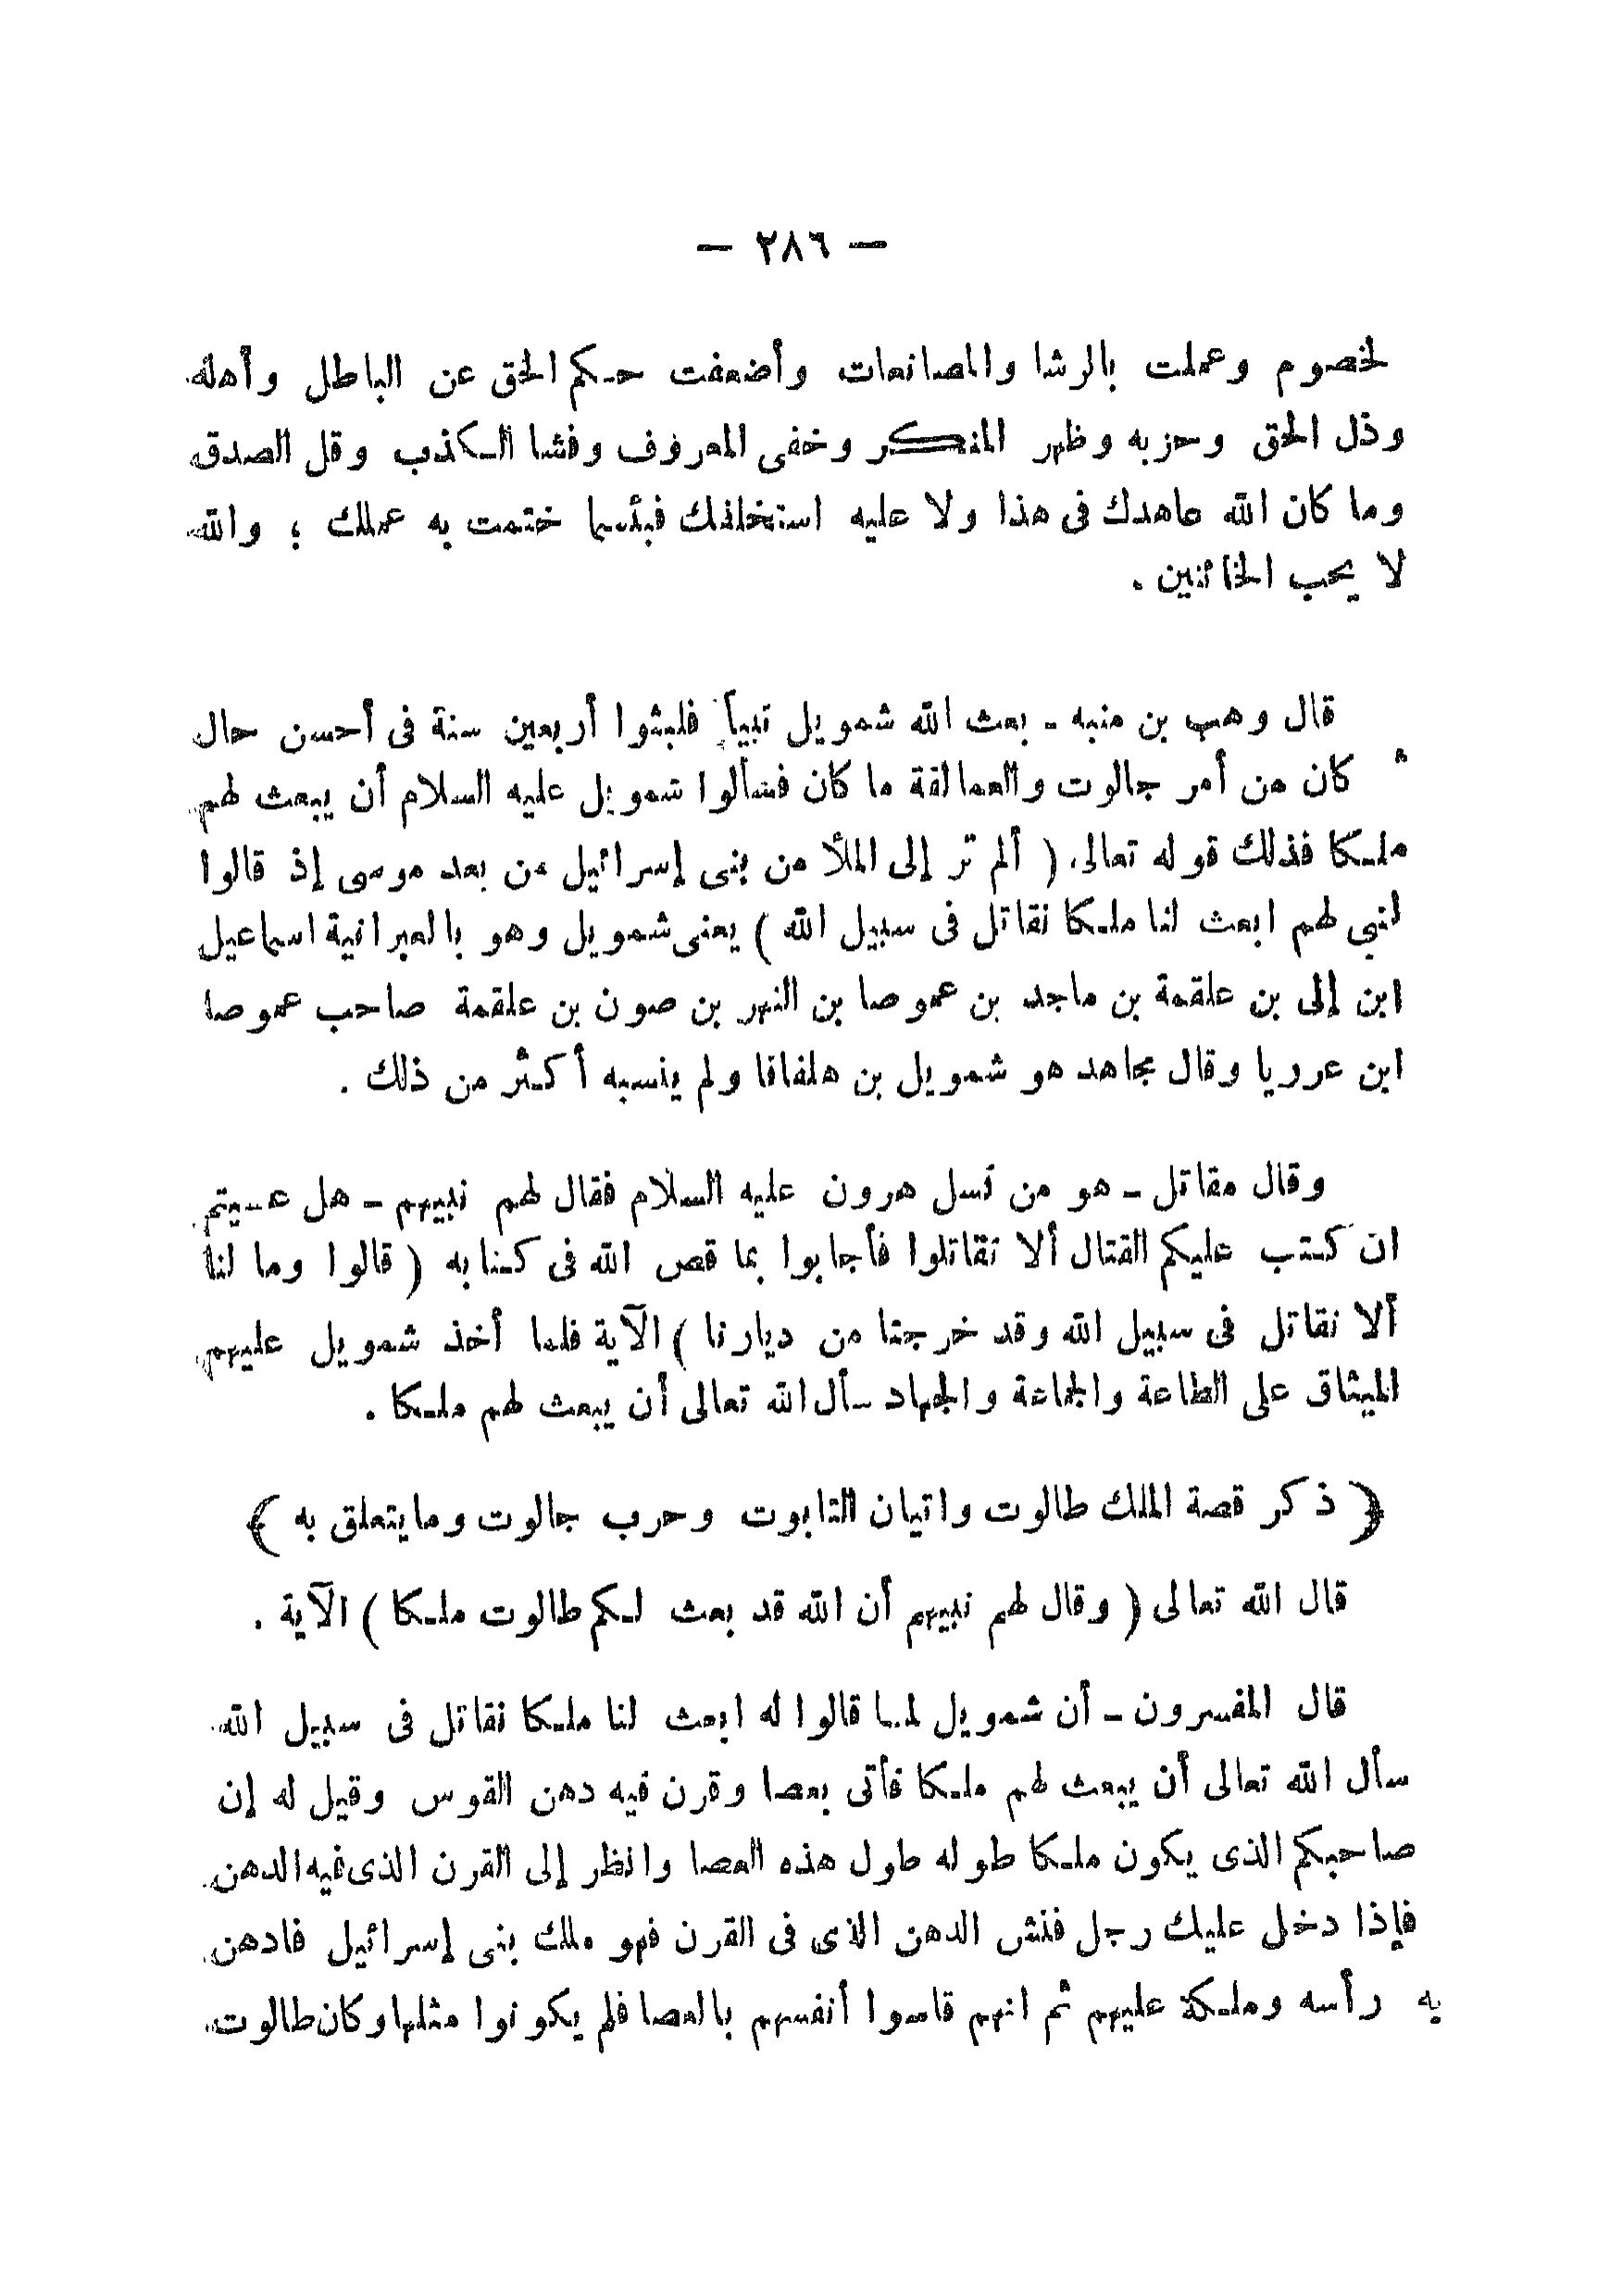 — ٢٨٦ —
لخصوم وعملت بالرشا والمصانعات وأضعفت حكم الحق عن الباطل وأهله
وذل الحق وحزبه وظهر المنكر وخفى المعروف وفشا الكذب وقل الصدق
وما كان الله عاهدك فى هذا ولا عليه استخلفك فبئسما ختمت به عملك ؛ والله
لا يحب الخائنين .
قال وهب بن منبه ـ بعث الله شمويل نبياً فلبثوا أربعين سنة فى أحسن حال
كان من أمر جالوت والعمالقة ما كان فسألوا شمويل عليه السلام أن يبعث لهم
ملكا فذلك قوله تعالى ( ألم تر إلى الملأ من بنى إسرائيل من بعد موسى إذ قالوا
لنبى لهم ابعث لنا ملكا نقاتل فى سبيل الله ) يعنى شمويل وهو بالعبرانية اسماعيل
ابن إلى بن علقمة بن ماجد بن عموصا بن النهر بن صون بن علقمة صاحب عموصا
ابن عرويا وقال مجاهد هو شمويل بن هلفاقا ولم ينسبه أكثر من ذلك .
وقال مقاتل ـ هو من نسل هرون عليه السلام فقال لهم نبيهم ـ هل عسيتم
ان كتب عليكم القتال ألا تقاتلوا فأجابوا بما قص الله فى كتابه ( قالوا وما لنا
ألا نقاتل فى سبيل الله وقد خرجنا من ديارنا ) الآية فلما أخذ شمويل عليهم
الميثاق على الطاعة والجماعة والجهاد سأل الله تعالى أن يبعث لهم ملكا .
﴿ ذكر قصة الملك طالوت واتيان التابوت وحرب جالوت ومايتعلق به ﴾
قال الله تعالى ( وقال لهم نبيهم أن الله قد بعث لكم طالوت ملكا ) الآية .
قال المفسرون ـ أن شمويل لما قالوا له ابعث لنا ملكا نقاتل فى سبيل الله
سأل الله تعالى أن يبعث لهم ملكا فأتى بعصا وقرن فيه دهن القوس وقيل له إن
صاحبكم الذى يكون ملكا طوله طول هذه العصا وانظر إلى القرن الذى فيه الدهن
فإذا دخل عليك رجل فنش الدهن الذى فى القرن فهو ملك بنى إسرائيل فادهن
به رأسه وملكة عليهم ثم انهم قاسوا أنفسهم بالعصا فلم يكونوا مثلها وكان طالوت